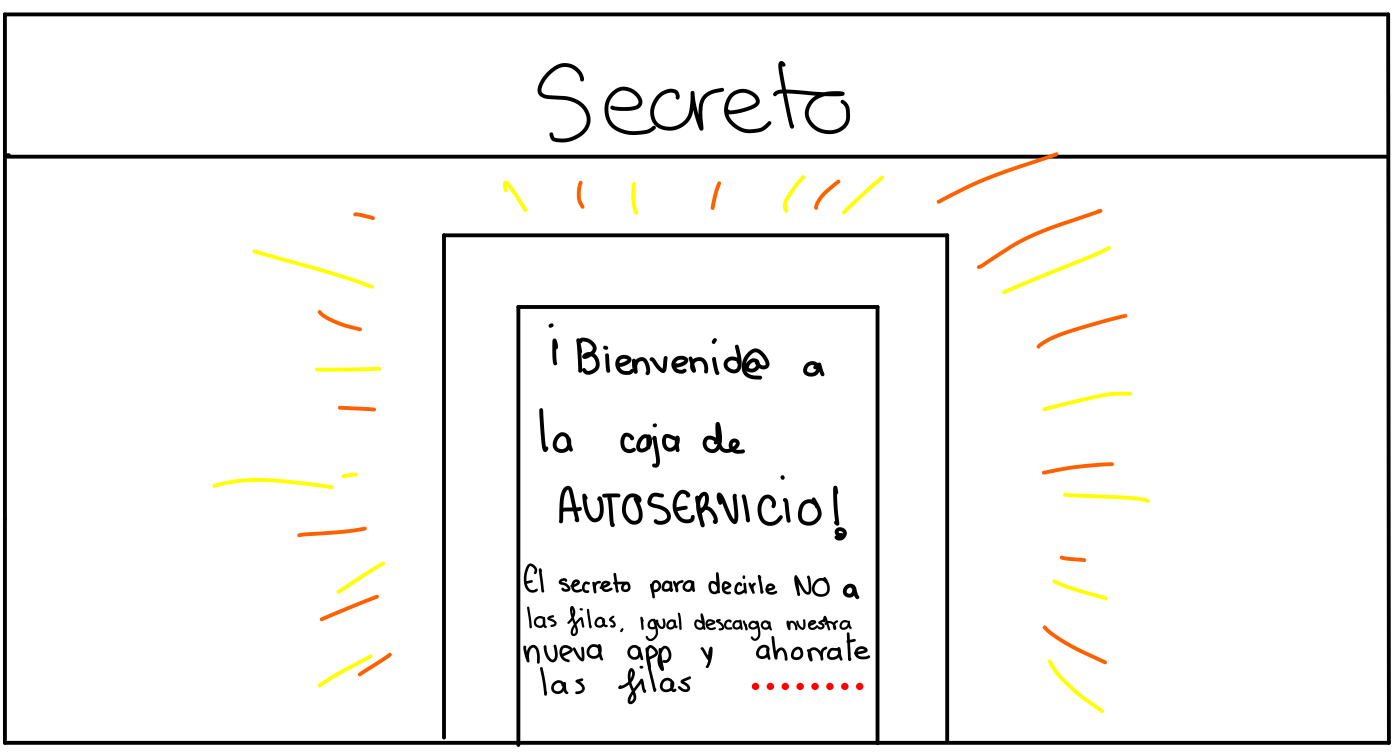 Secreto
¡Bienvenid@ a
la caja de
AUTOSERVICIO!
El secreto para decirle NO a
las filas, igual descarga nuestra
nueva app y ahorrate
las filas ........